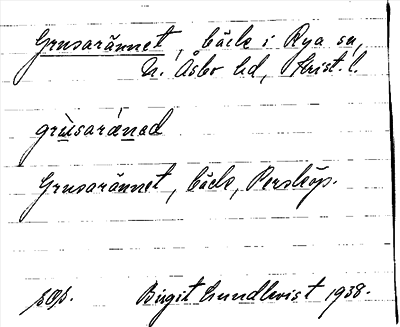 Grusarännet, bäck i Rya sn,
N. Åsbo hd, Krist. l.
grùsaránad
Grusarännet, bäck, Perstorp.
sOp. Birgit Lundkvist 1938.